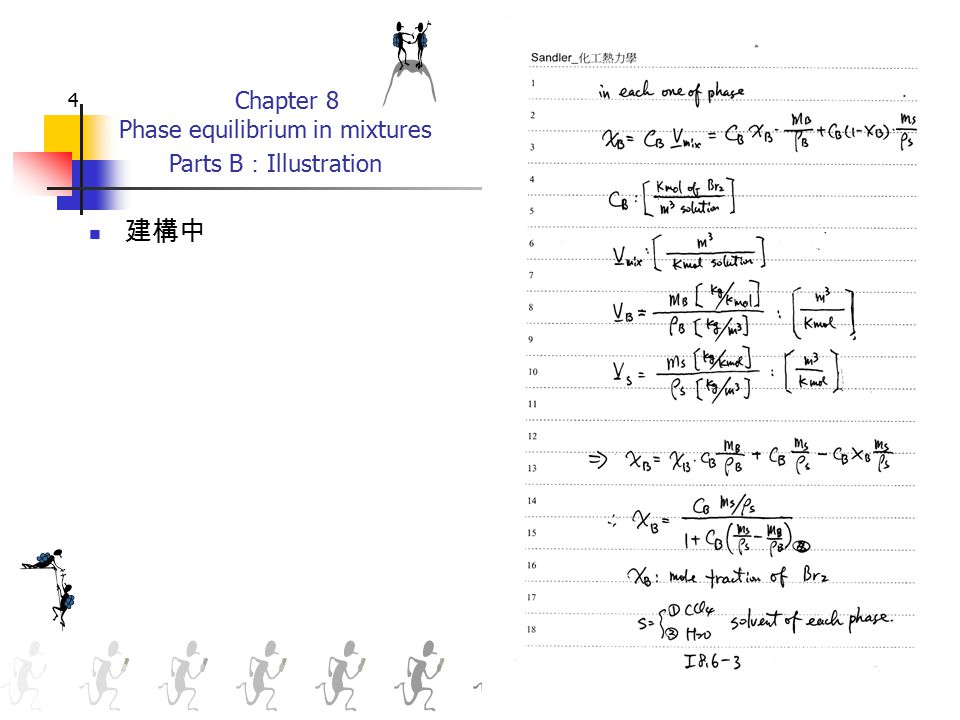 4
Chapter 8
Phase equilibrium in mixtures
Parts B：Illustration
建構中
Sandler_化工熱力學
1
in each one of phase
2
χB = CB V̲mix = CB χB · mB/ρB + CB(1-χB) · ms/ρs
3
4
CB : [Kmol of Br2 / m³ solution]
5
6
V̲mix : [m³ / Kmol solution]
7
8
V̲B = mB [kg/kmol] / ρB [kg/m³] : [m³ / Kmol]
9
10
V̲s = ms [kg/kmol] / ρs [kg/m³] : [m³ / Kmol]
11
12
⇒ χB = χB · CB mB/ρB + CB ms/ρs − CB χB ms/ρs
13
14
∴ χB = CB ms/ρs / 1 + CB (ms/ρs − mB/ρB)
15
16
χB : mole fraction of Br2
17
s = { ① CCl4
② H2O solvent of each phase.
18
I8.6-3